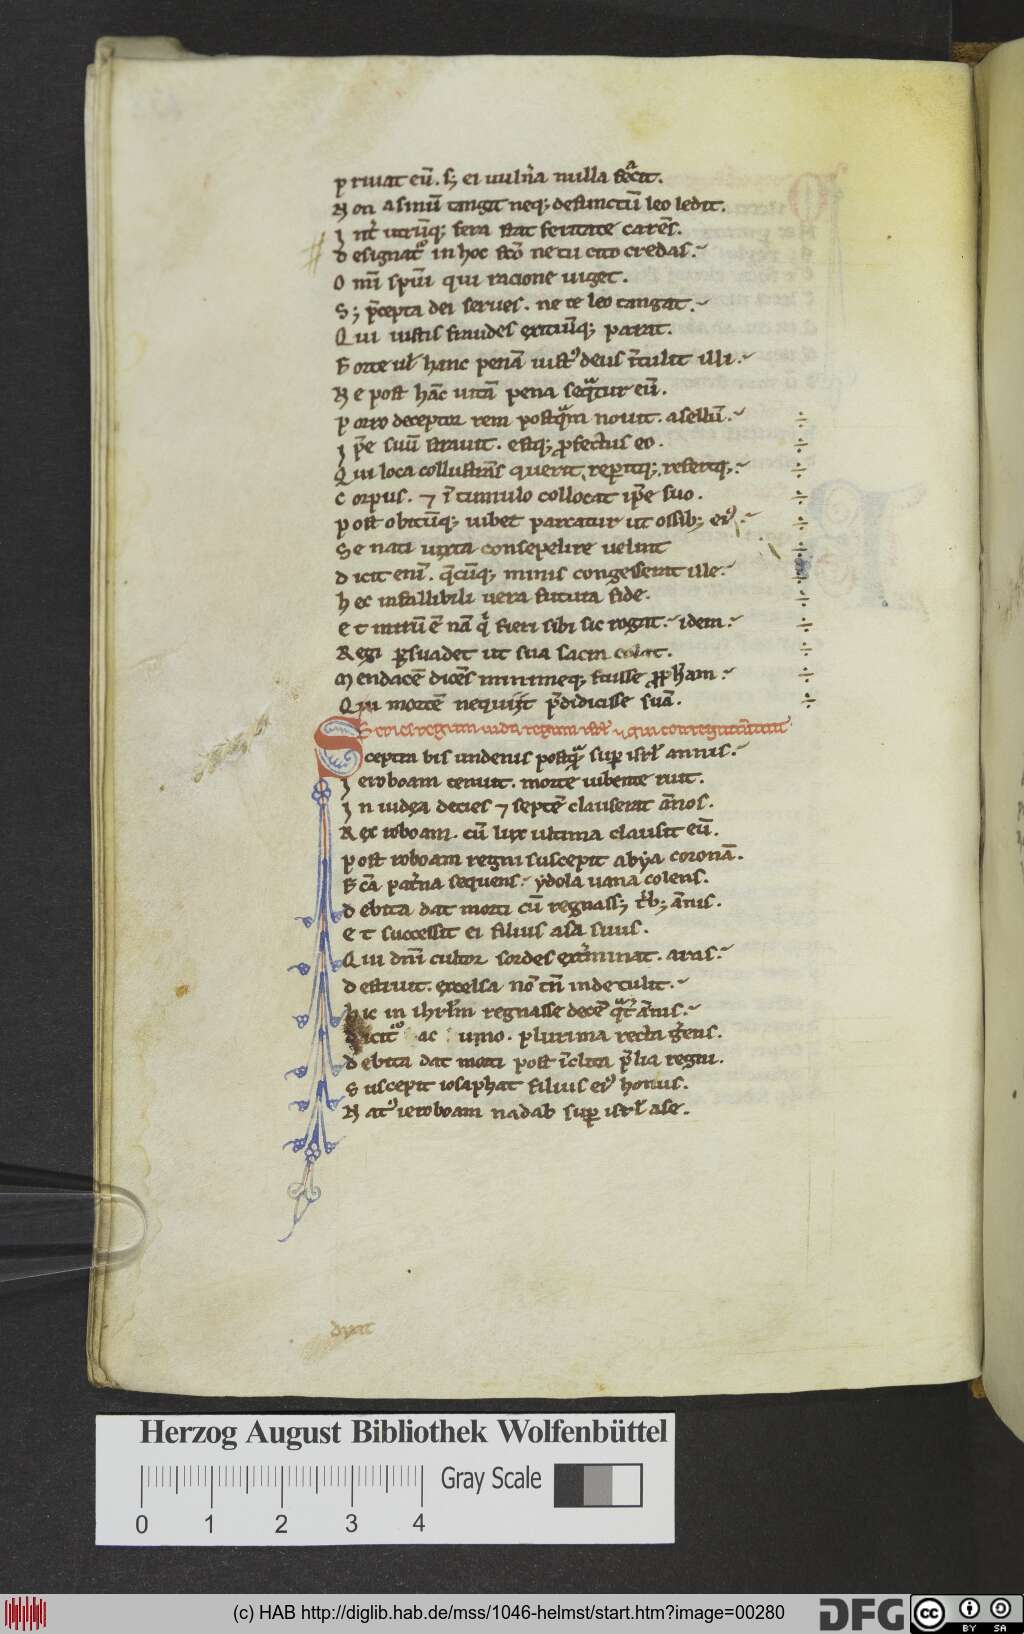 p riuat eū. s; ei uuln̄a nulla fac̄it.
N on asinū tangit neq; defunctū leo ledit.
I nt̄ utrūq; fera stat feritate carēs.
d esignat᷒ in hoc fc̄o ne tu cito credas.
O m̄i sp̄ui qui racione uiget.
S; p̄cepta dei serues. ne te leo tangat.
Q ui iustis fraudes exitiūq; parat.
F orte ul̄ hanc penā iust᷒ deus ītulit illi.
N e post hāc uitā pena seq̄tur eū.
p orro deceptor rem postq̄m nouit. asellū.
I p̄e suū strauit. estq; profectus eo.
Q ui loca collustrās querit, reperitq; refertq;
C orpus. ⁊ ī tumulo collocat ip̄e suo.
p ost obitūq; uibet parcatur ut ossib; ei᷒
S e nati iuxta consepelire uelint
d icit enī. q̄cūq; minis congesserat ille.
h ec infallibili uera futura fide.
E t mirū ē nā q̄ fieri sibi sic rogat. idem.
R egi p̱suadet ut sua sacra colat.
M endacē dicēs minimeq; fuisse proph̄am.
Q ui mortē nequiit p̄didicisse suā.
Series regum iuda regum isrl̄
Sceptra bis undenis postq̄ sup̱ isrl̄ annis.
I eroboam tenuit. morte iubente ruit.
I n iudea decies ⁊ septē clauserat ānos.
R ex roboam. cū lux ultima clausit eū.
p ost roboam regni suscepit abya coronā.
F c̄a pat̄na sequens. ydola uana colens.
d ebita dat morti cū regnass; trib; ānis.
E t successit ei filius asa suus.
Q ui dn̄i cultor sordes ext̄minat. aras.
d estruit. excelsa nō tn̄ inde tulit.
h ic in ihrl̄m regnasse decē q̄t̄ ānis.
d icit᷒ ac uno. plurima recta gerens.
d ebita dat morti post īclita p̄lia regni.
S uscepit iosaphat filius ei᷒ honus.
N at᷒ ieroboam nadab sup̱ isrl̄ ase.
Herzog August Bibliothek Wolfenbüttel
Gray Scale
0 1 2 3 4
(c) HAB http://diglib.hab.de/mss/1046-helmst/start.htm?image=00280
DFG
cc BY SA